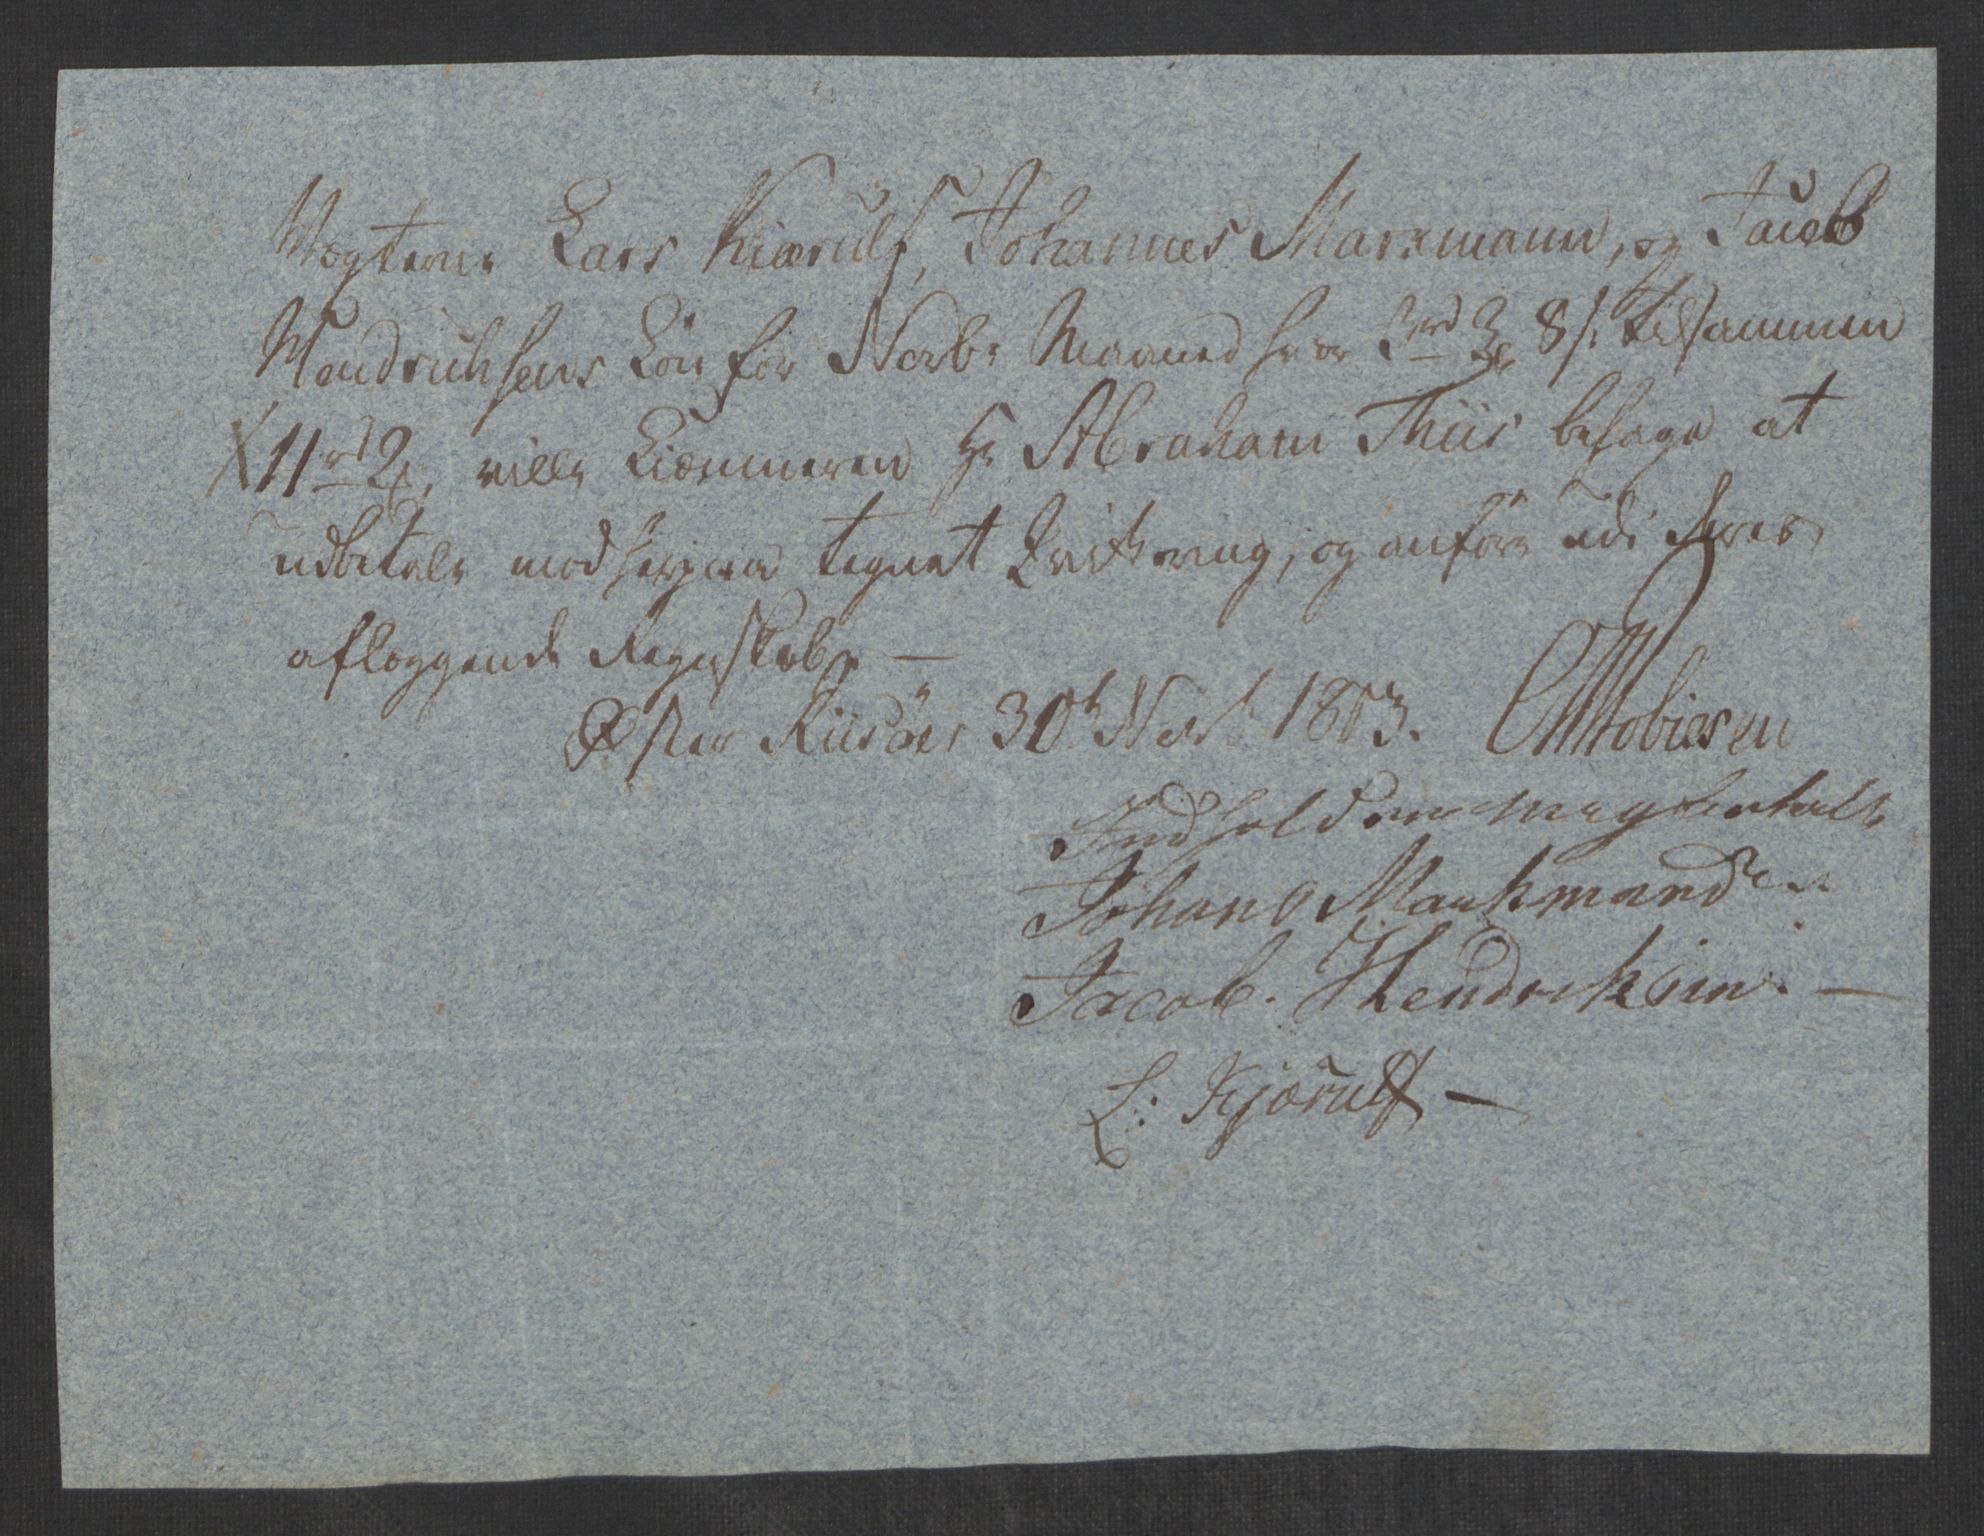 Vægterne Lars Kiærulf, Johannes Markmann, og Jacob
Hendrichsens Løn for Novbr Maaned hver 3rd 3# 8s: tilsammen
11rd 2#, ville Kiemneren Hr Abraham Thiis behage at
udbetale mod herpaa tegnet Qvitering, og anføre udi Deres
aflæggende Regnskab. —
Øster Riisøer 30t Novbr 1803. Tobiesen
Indholdene mig betalt
Johan Markmand
Jacob. Hendrichsen. —
L: Kjærulf —